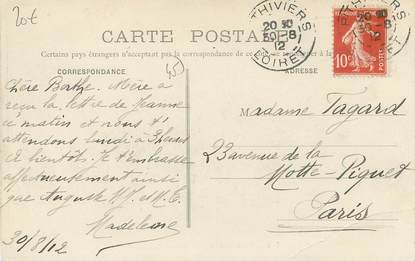 20€
CARTE POSTALE
Certains pays étrangers n'acceptant pas la correspondance de ce
CORRESPONDANCE
ADRESSE
45
PITHIVIERS
20 30
30-8
12
LOIRET
POSTES
10c
Chère Berthe. Mère a
reçu la lettre de Jeanne
ce matin et nous t'
attendons lundi à 3 heures
à bientôt. Je t'embrasse
affectueusement ainsi
que Auguste M. et M. E.
Madeleine
30/8/12
Madame Tagard
23 avenue de la
Motte-Piquet
Paris